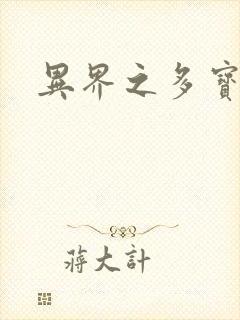 異界之多寶
蔣大計